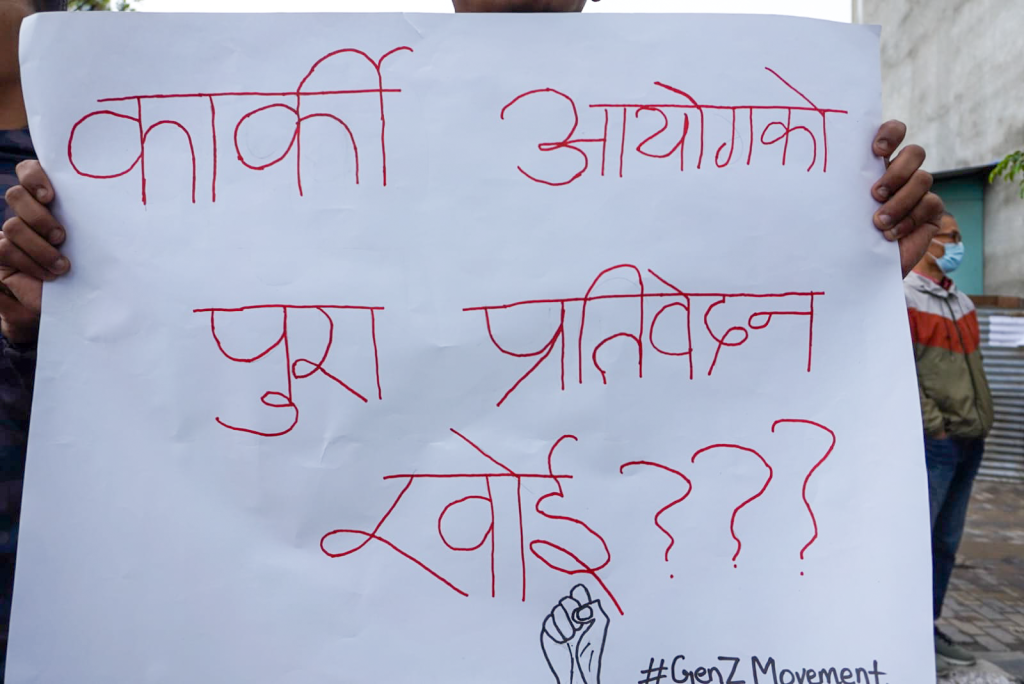 कार्की आयोगको
पुरा प्रतिवेदन
खोई ???
#GenZ Movement